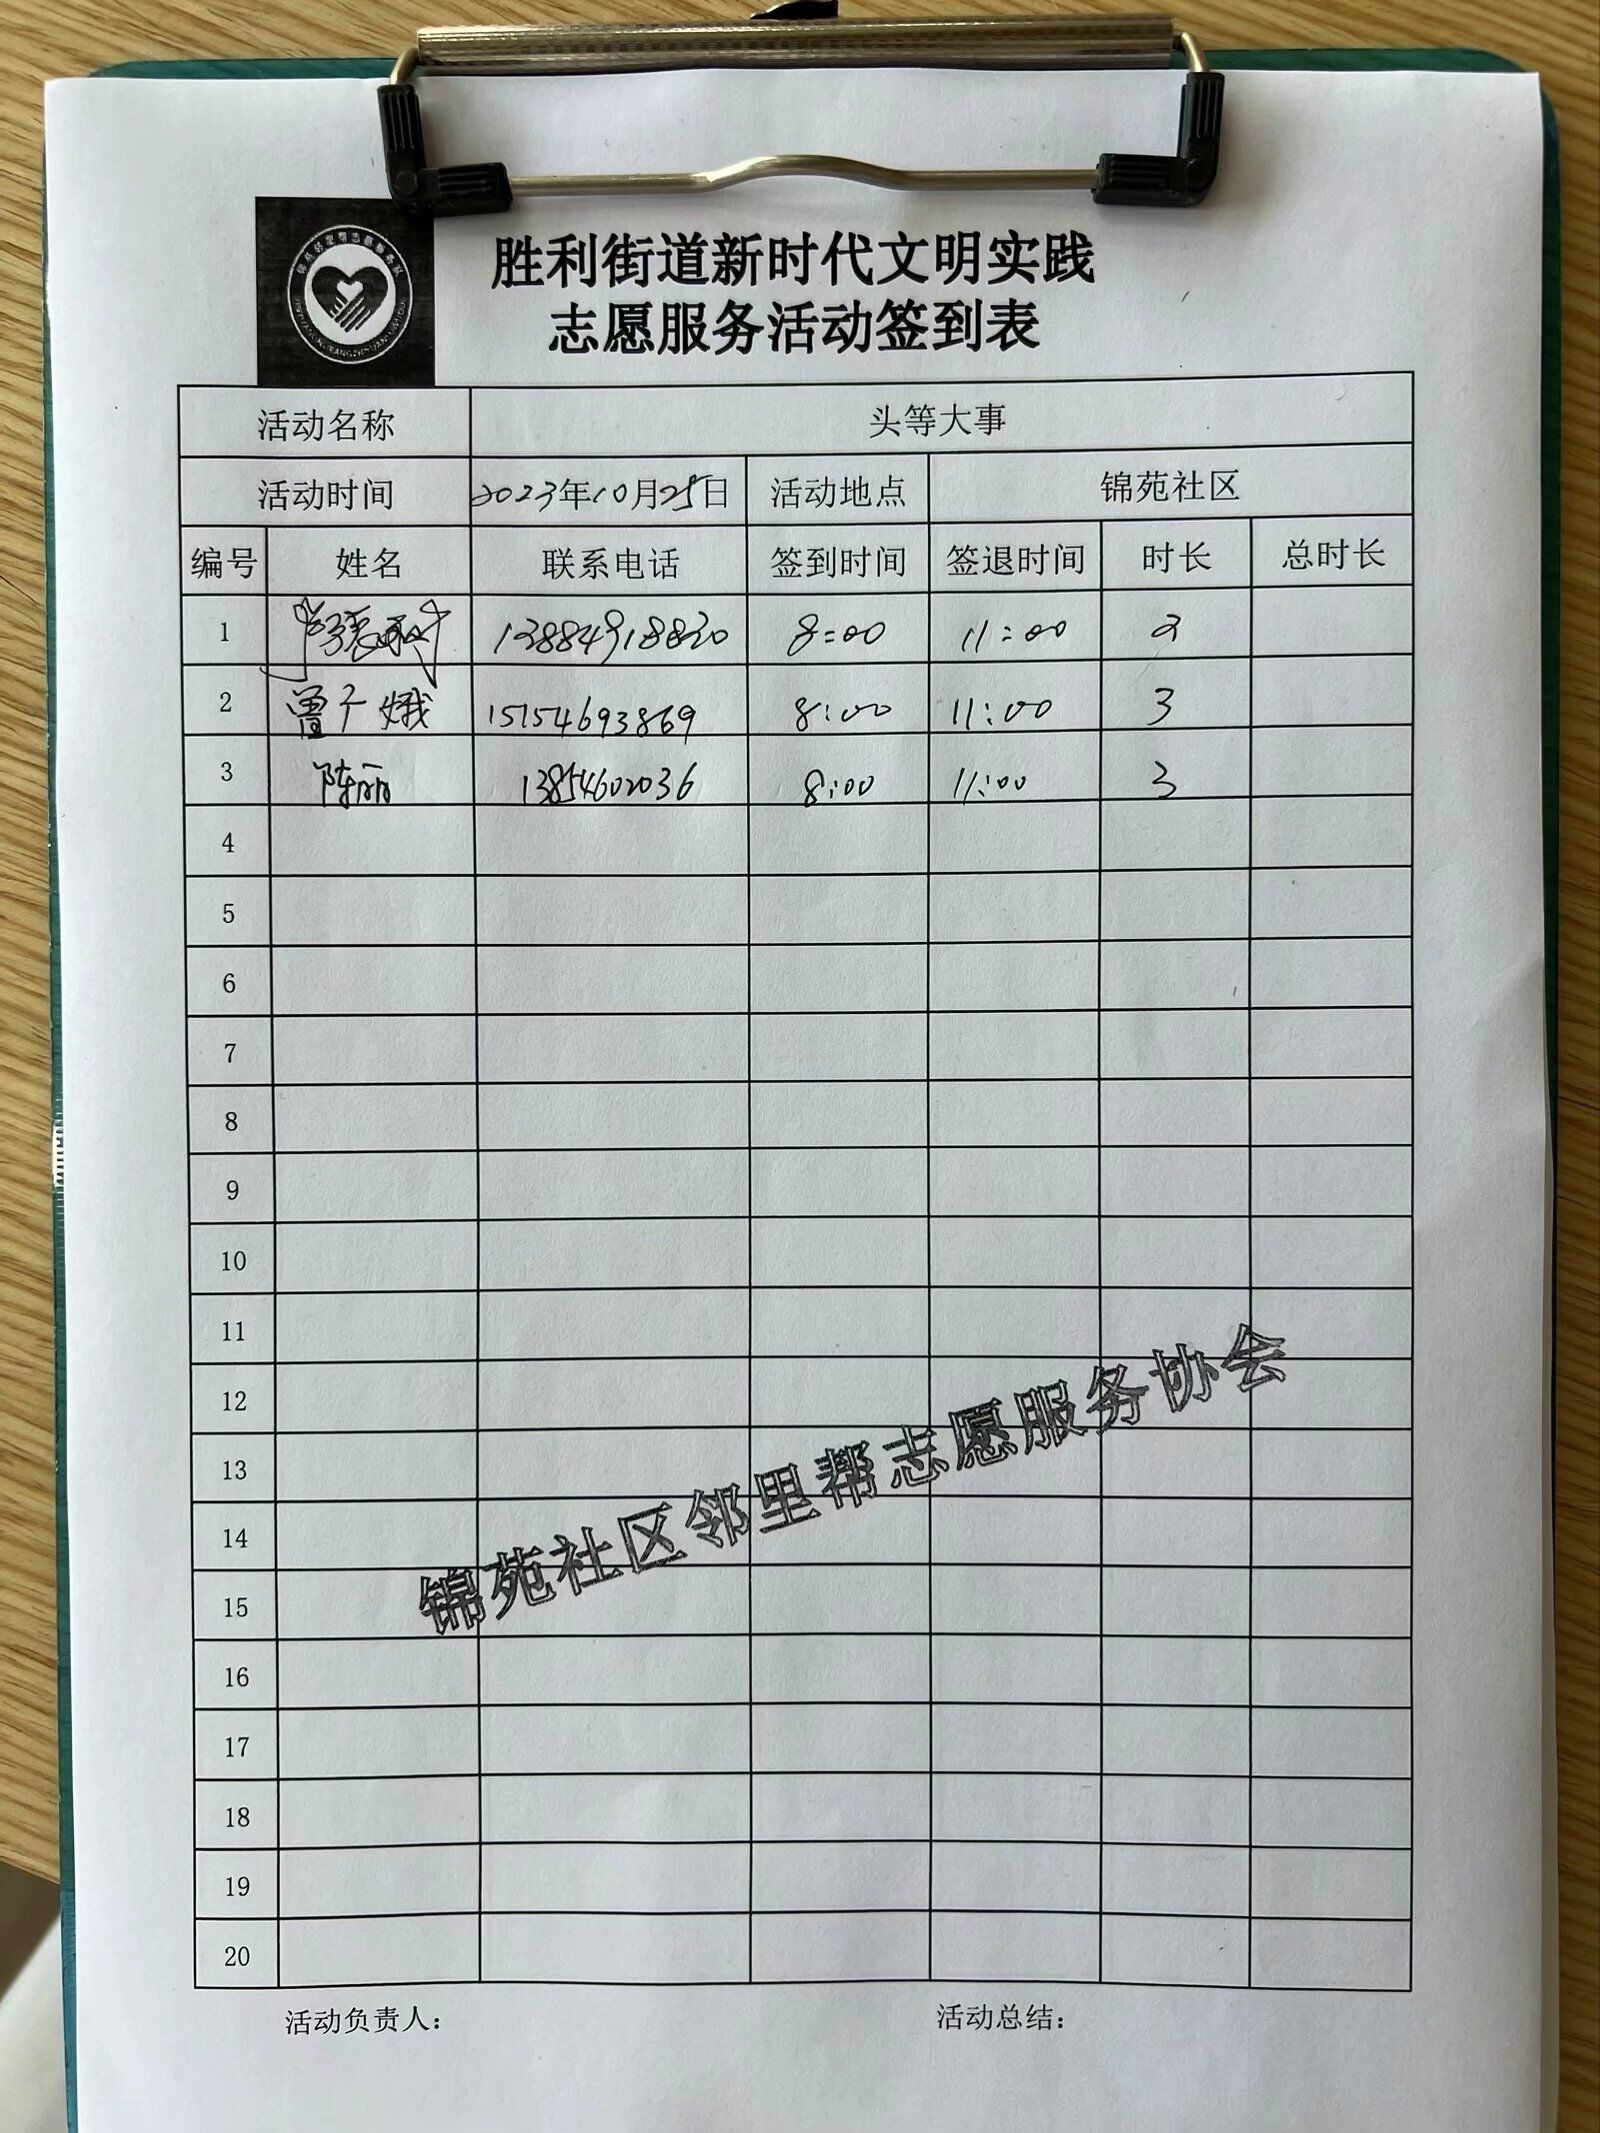 胜利街道新时代文明实践
志愿服务活动签到表
活动名称 头等大事
活动时间 2023年10月25日 活动地点 锦苑社区
编号 姓名 联系电话 签到时间 签退时间 时长 总时长
1 13884918820 8:00 11:00
2 曾 娥 15154693869 8:00 11:00 3
3 陈丽 13854602036 8:00 11:00 3
4
5
6
7
8
9
10
11
12
13
14
15
16
17
18
19
20
锦苑社区邻里帮志愿服务协会
活动负责人: 活动总结: